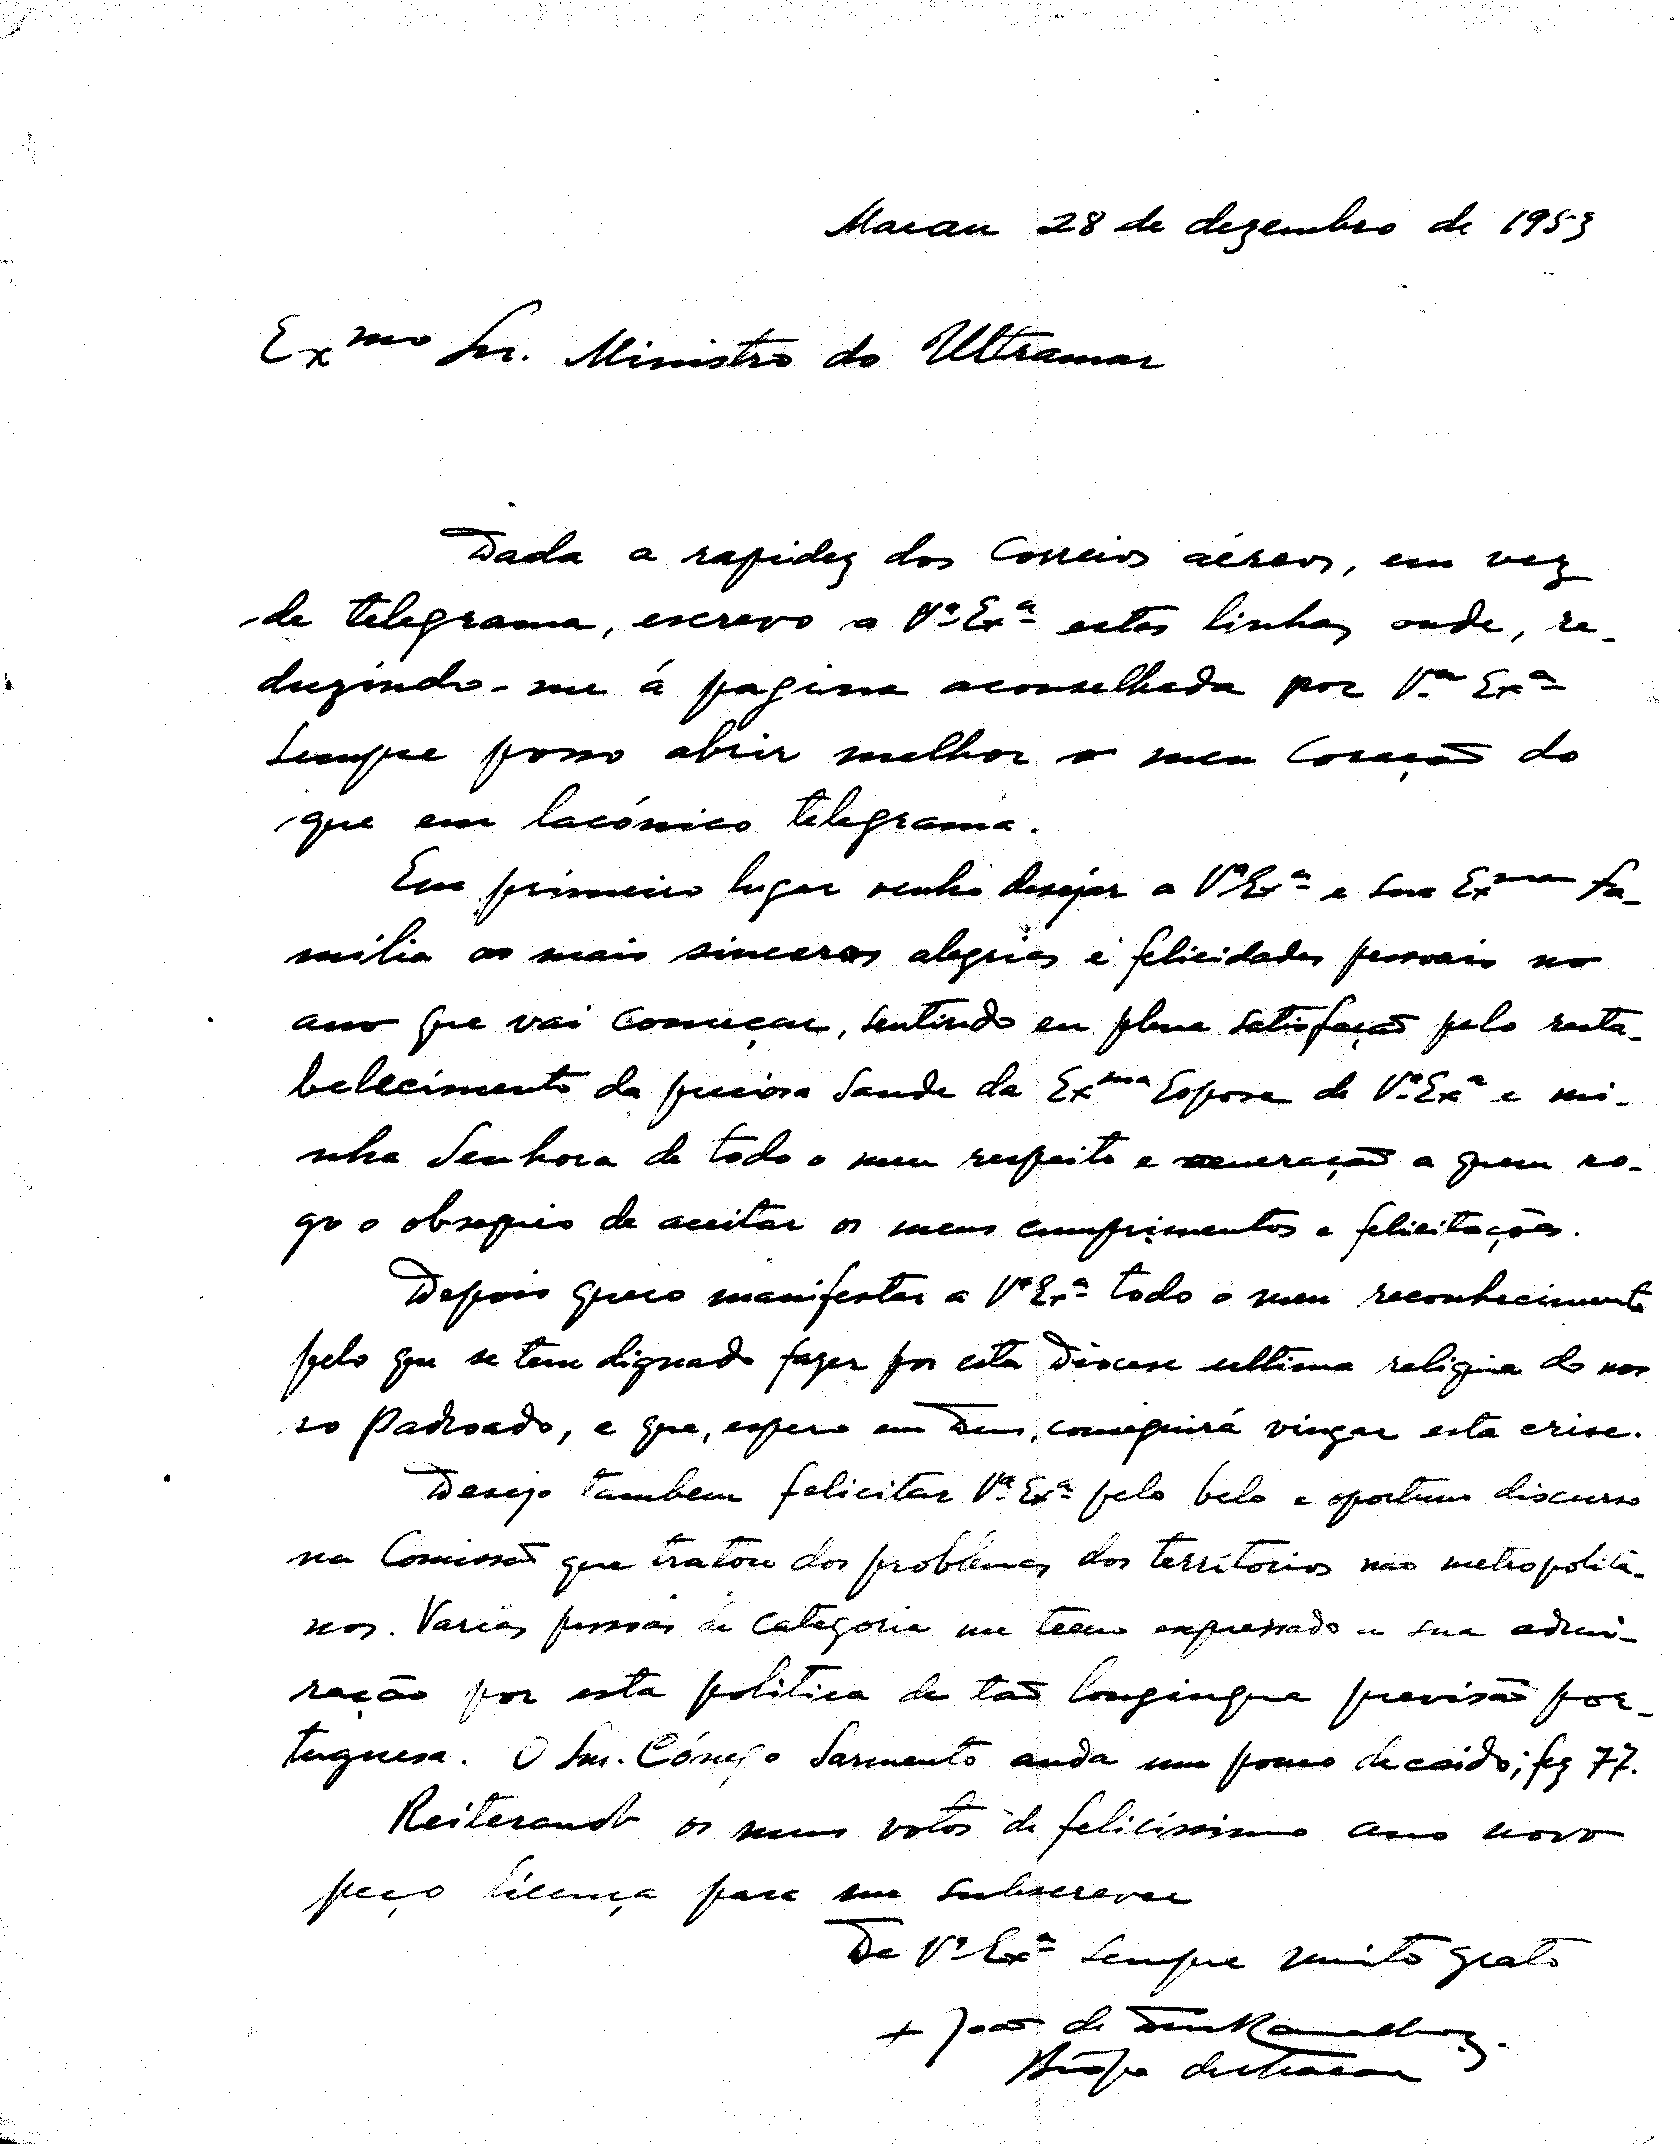 Macau 28 de dezembro de 1953
Exmo Snr. Ministro do Ultramar
Dada a rapidez dos Correios aéreos, em vez
de telegrama, escrevo a Vª Exª estas linhas onde, re-
duzindo-me á pagina aconselhada por Vª Exª
sempre posso abrir melhor o meu Coração do
que em lacónico telegrama.
Em primeiro lugar venho desejar a Vª Exª e sua Exma fa-
milia as mais sinceras alegrias e felicidades pessoais no
ano que vai começar, sentindo eu plena satisfação pelo resta-
belecimento da preciosa saude da Exma Esposa de Vª Exª e mi-
nha Senhora de todo o meu respeito e veneração a quem ro-
go o obsequio de aceitar os meus cumprimentos e felicitações.
Depois quero manifestar a Vª Exª todo o meu reconhecimento
pelo que se tem dignado fazer por esta Diocese ultima reliquia do nos
so Padroado, e que, espero em Deus, conseguirá vingar esta crise.
Desejo tambem felicitar Vª Exª pelo belo e oportuno discurso
na Comissão que tratou dos problemas dos territorios não metropolita-
nos. Varias pessoas de categoria me teem expressado a sua admi-
ração por esta politica de tão longinqua previsão por-
tuguesa. O Snr. Cónego Sarmento anda um pouco decaido; fez 77.
Reiterando os meus votos de felicissimo ano novo
peço licença para me subscrever
De Vª Exª sempre muito grato
+ João de Deus Ramalho
Bispo de Macau